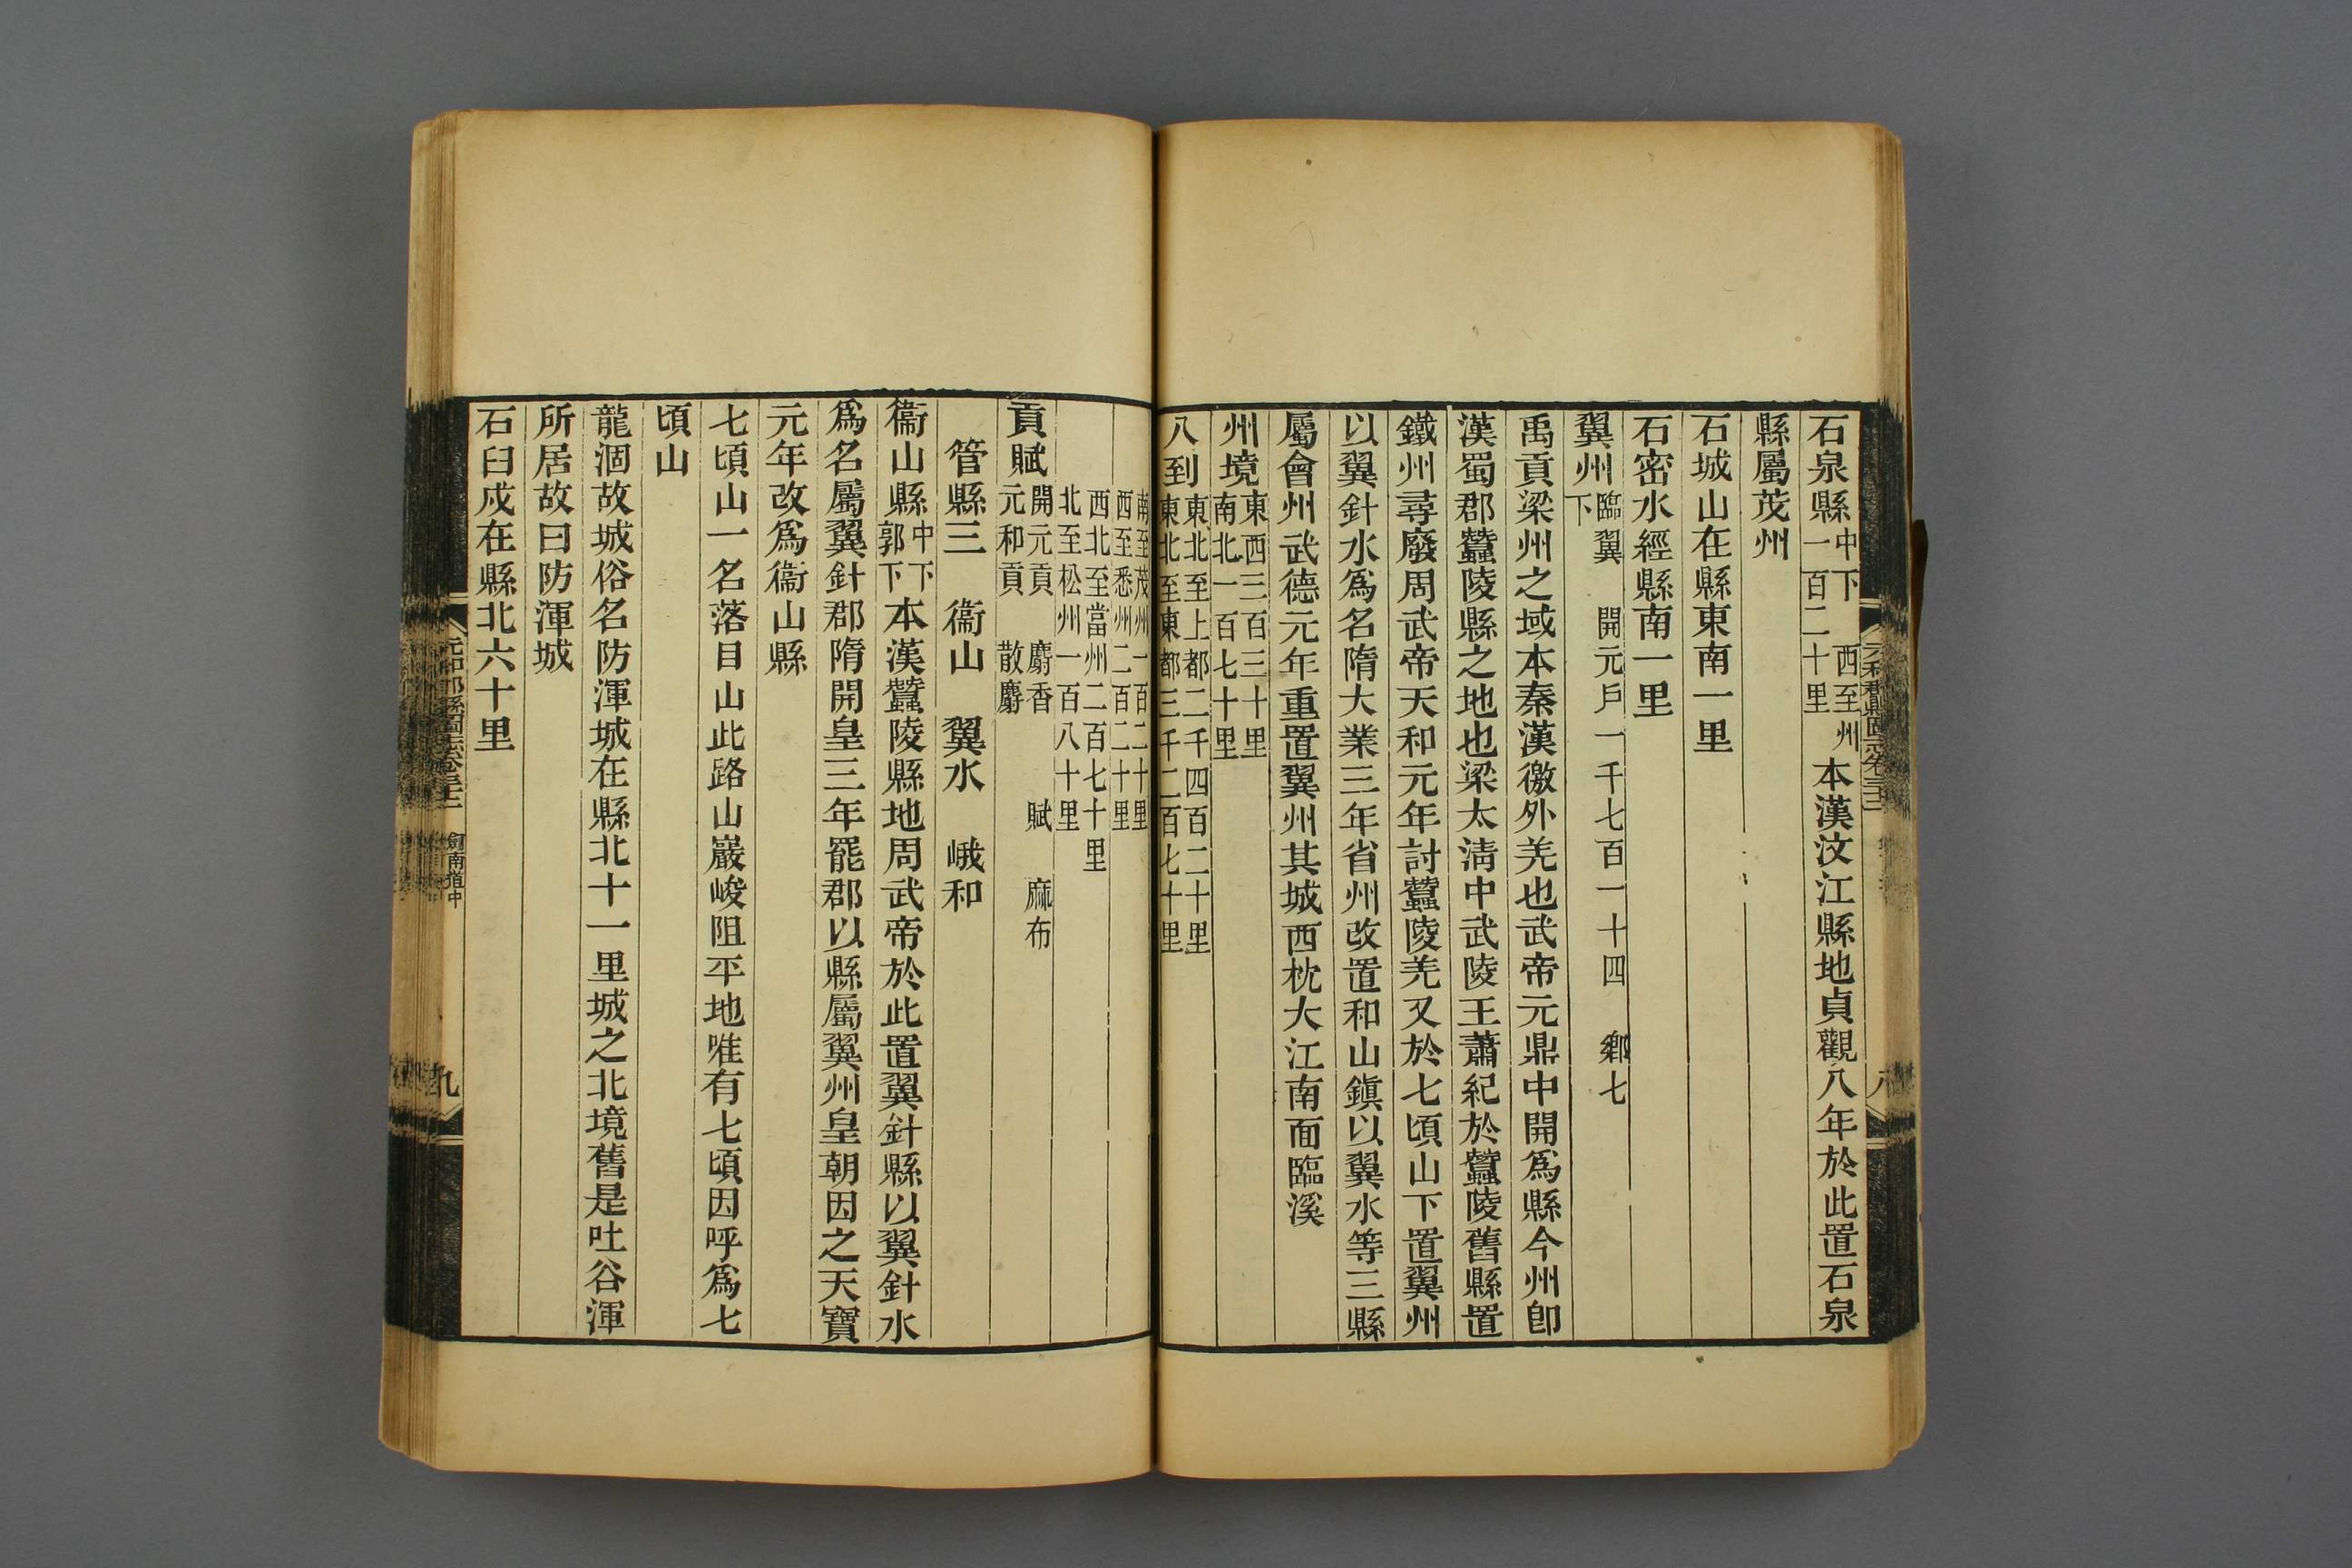 石泉縣中下 西至州一百二十里本漢汶江縣地貞觀八年於此置石泉
縣屬茂州
石城山在縣東南一里
石密水經縣南一里
翼州臨翼 開元戶一千七百一十四 鄉七下
禹貢梁州之域本秦漢徼外羌也武帝元鼎中開爲縣今州卽
漢蜀郡蠶陵縣之地也梁太淸中武陵王蕭紀於蠶陵舊縣置
鐵州尋廢周武帝天和元年討蠶陵羌又於七頃山下置翼州
以翼針水爲名隋大業三年省州改置和山鎭以翼水等三縣
屬會州武德元年重置翼州其城西枕大江南面臨溪
州境東西三百三十里南北一百七十里
八到東北至上都二千四百二十里東北至東都三千二百七十里
南至茂州一百二十里西至悉州二百二十里
西北至當州二百七十里北至松州一百八十里
貢賦開元貢 麝香 賦 麻布元和貢 散麝
管縣三 衞山 翼水 峨和
衞山縣中下郭下本漢蠶陵縣地周武帝於此置翼針縣以翼針水
爲名屬翼針郡隋開皇三年罷郡以縣屬翼州皇朝因之天寶
元年改爲衞山縣
七頃山一名落目山此路山巖峻阻平地唯有七頃因呼爲七
頃山
龍涸故城俗名防渾城在縣北十一里城之北境舊是吐谷渾
所居故曰防渾城
石臼戍在縣北六十里
元和郡縣圖志卷三十二 劒南道中
九